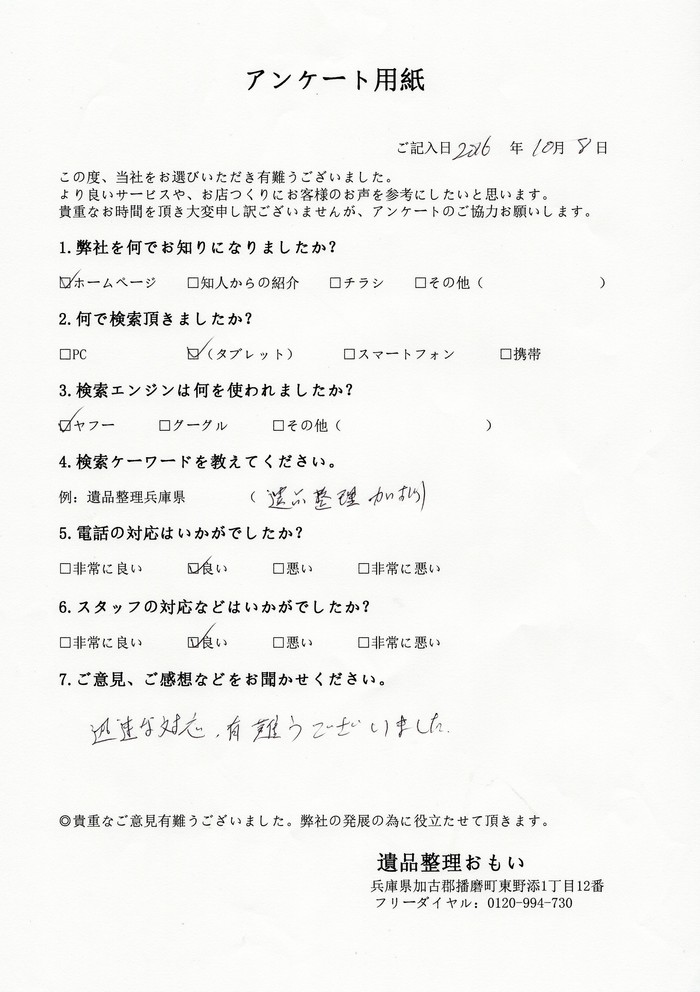 アンケート用紙
ご記入日 2016 年 10月 8 日
この度、当社をお選びいただき有難うございました。
より良いサービスや、お店つくりにお客様のお声を参考にしたいと思います。
貴重なお時間を頂き大変申し訳ございませんが、アンケートのご協力お願いします。
1.弊社を何でお知りになりましたか?
☑ホームページ □知人からの紹介 □チラシ □その他（ ）
2.何で検索頂きましたか?
□PC ☑（タブレット） □スマートフォン □携帯
3.検索エンジンは何を使われましたか?
☑ヤフー □グーグル □その他（ ）
4.検索ケーワードを教えてください。
例: 遺品整理兵庫県 （ 遺品整理 ）
5.電話の対応はいかがでしたか?
□非常に良い ☑良い □悪い □非常に悪い
6.スタッフの対応などはいかがでしたか?
□非常に良い ☑良い □悪い □非常に悪い
7.ご意見、ご感想などをお聞かせください。
迅速な対応、有難うございました.
◎貴重なご意見有難うございました。弊社の発展の為に役立たせて頂きます。
遺品整理おもい
兵庫県加古郡播磨町東野添1丁目12番
フリーダイヤル: 0120-994-730